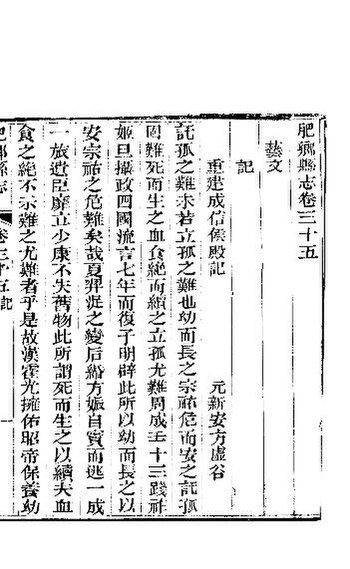 肥鄉縣志卷三十五
藝文
記
重建成信侯殿記　元新安方虛谷
託孤之難未若立孤之難也幼而長之宗祐危而安之託孤
固難死而生之血食絶而續之立孤尤難周成王十三踐祚
姬旦攝政四國流言七年而復子明辟此所以幼而長之以
安宗祐之危難矣哉夏羿浞之變后緡方娠自竇而逃一成
一旅遺臣靡立少康不失舊物此所謂死而生之以續夫血
食之絶不亦難之尤難者乎是故漢霍光擁佑昭帝保養幼
肥鄉縣志　卷三十五　記　一